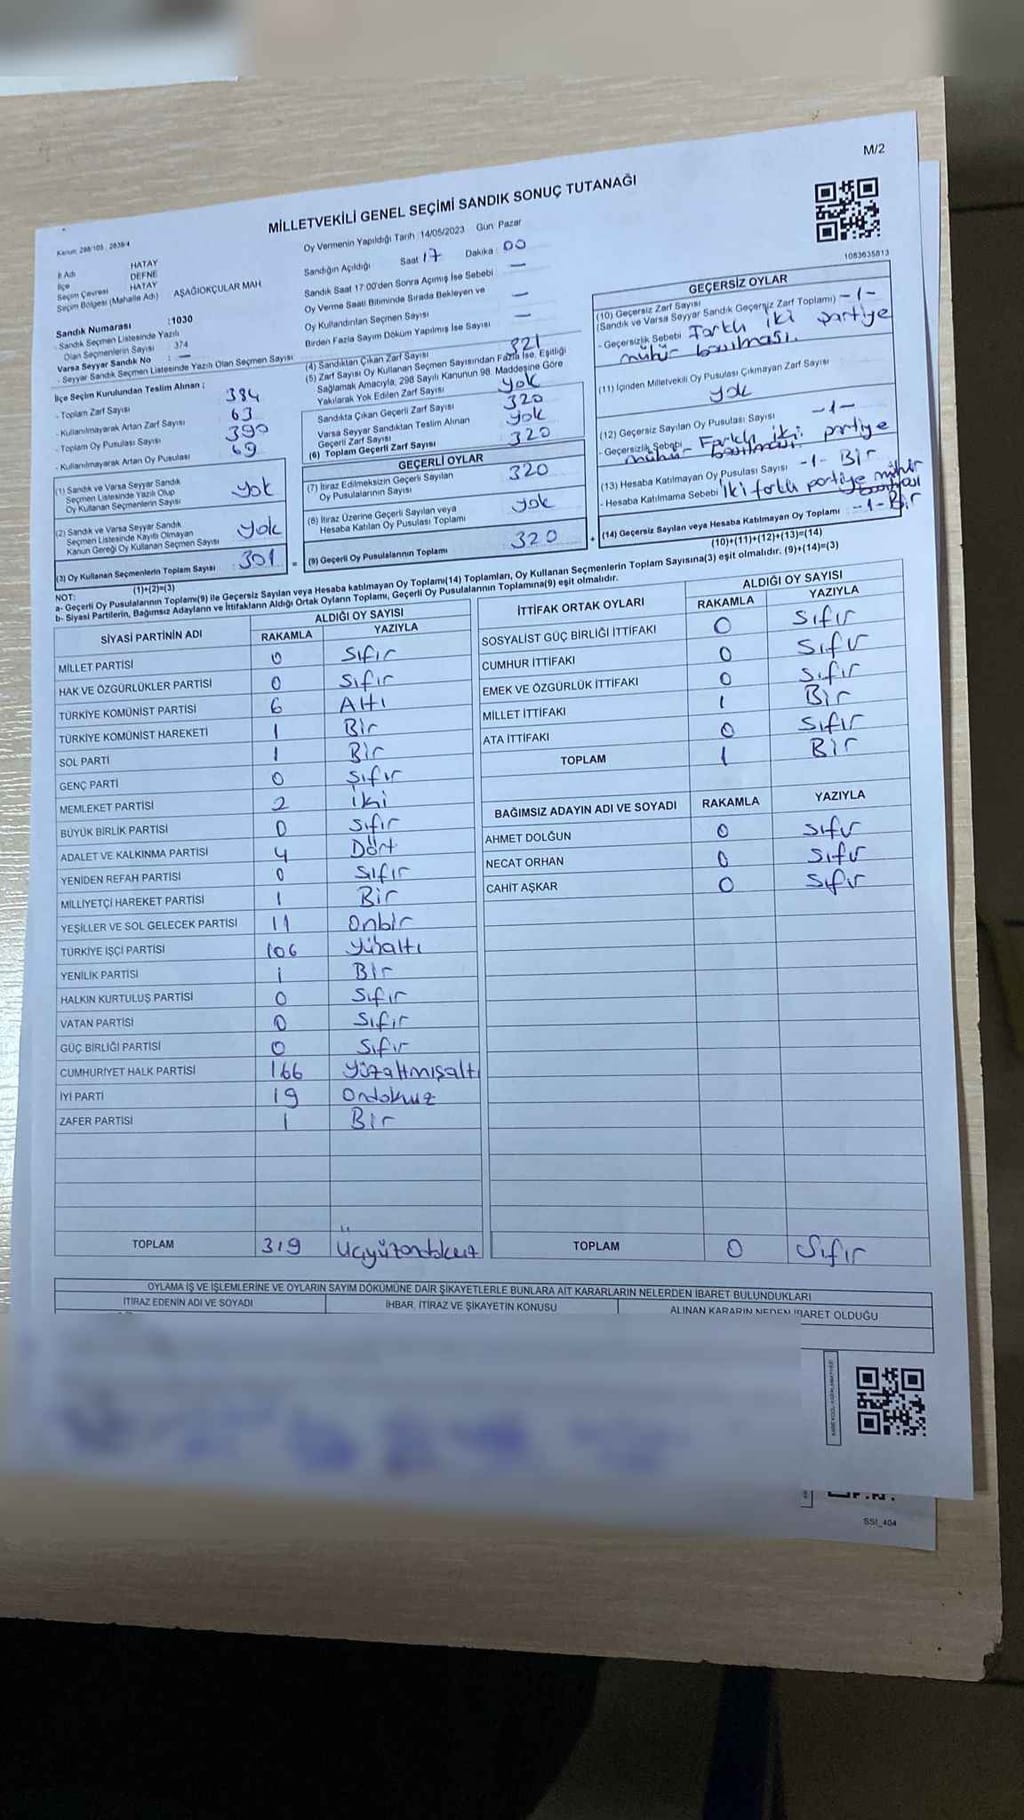 M/2
MİLLETVEKİLİ GENEL SEÇİMİ SANDIK SONUÇ TUTANAĞI
1083635813
İl Adı HATAY
İlçe DEFNE
Seçim Çevresi HATAY
Seçim Bölgesi (Mahalle Adı) AŞAĞIOKÇULAR MAH
Sandık Numarası :1030
- Sandık Seçmen Listesinde Yazılı
Olan Seçmenlerin Sayısı : 374
Varsa Seyyar Sandık No : —
- Seyyar Sandık Seçmen Listesinde Yazılı Olan Seçmen Sayısı
İlçe Seçim Kurulundan Teslim Alınan ;
- Toplam Zarf Sayısı 384
- Kullanılmayarak Artan Zarf Sayısı 63
- Toplam Oy Pusulası Sayısı 390
- Kullanılmayarak Artan Oy Pusulası 69
(1) Sandık ve Varsa Seyyar Sandık
Seçmen Listesinde Yazılı Olup
Oy Kullanan Seçmenlerin Sayısı yok
(2) Sandık ve Varsa Seyyar Sandık
Seçmen Listesinde Kayıtlı Olmayan
Kanun Gereği Oy Kullanan Seçmen Sayısı yok
(3) Oy Kullanan Seçmenlerin Toplam Sayısı 301
(1)+(2)=(3)
Oy Vermenin Yapıldığı Tarih :14/05/2023 Gün Pazar
Sandığın Açıldığı Saat 17 Dakika : 00
Sandık Saat 17:00'den Sonra Açılmış İse Sebebi —
Oy Verme Saati Bitiminde Sırada Bekleyen ve
Oy Kullandırılan Seçmen Sayısı —
Birden Fazla Sayım Döküm Yapılmış İse Sayısı —
(4) Sandıktan Çıkan Zarf Sayısı 321
(5) Zarf Sayısı Oy Kullanan Seçmen Sayısından Fazla İse, Eşitliği
Sağlamak Amacıyla, 298 Sayılı Kanunun 98. Maddesine Göre
Yakılarak Yok Edilen Zarf Sayısı yok
Sandıkta Çıkan Geçerli Zarf Sayısı 320
Varsa Seyyar Sandıktan Teslim Alınan
Geçerli Zarf Sayısı yok
(6) Toplam Geçerli Zarf Sayısı 320
GEÇERLİ OYLAR
(7) İtiraz Edilmeksizin Geçerli Sayılan
Oy Pusulalarının Sayısı 320
(8) İtiraz Üzerine Geçerli Sayılan veya
Hesaba Katılan Oy Pusulası Toplamı yok
= (9) Geçerli Oy Pusulalarının Toplamı 320
GEÇERSİZ OYLAR
(10) Geçersiz Zarf Sayısı
(Sandık ve Varsa Seyyar Sandık Geçersiz Zarf Toplamı) -1-
- Geçersizlik Sebebi Farklı iki partiye
mühür basılması.
(11) İçinden Milletvekili Oy Pusulası Çıkmayan Zarf Sayısı
yok
(12) Geçersiz Sayılan Oy Pusulası Sayısı -1-
- Geçersizlik Sebebi Farklı iki partiye
mühür basılması
(13) Hesaba Katılmayan Oy Pusulası Sayısı -1- Bir
- Hesaba Katılmama Sebebi İki farklı partiye mühür
basılması
+ (14) Geçersiz Sayılan veya Hesaba Katılmayan Oy Toplamı -1- Bir
(10)+(11)+(12)+(13)=(14)
NOT:
a- Geçerli Oy Pusulalarının Toplamı(9) ile Geçersiz Sayılan veya Hesaba katılmayan Oy Toplamı(14) Toplamları, Oy Kullanan Seçmenlerin Toplam Sayısına(3) eşit olmalıdır. (9)+(14)=(3)
b- Siyasi Partilerin, Bağımsız Adayların ve İttifakların Aldığı Ortak Oyların Toplamı, Geçerli Oy Pusulalarının Toplamına(9) eşit olmalıdır.
SİYASİ PARTİNİN ADI ALDIĞI OY SAYISI
RAKAMLA YAZIYLA
MİLLET PARTİSİ 0 Sıfır
HAK VE ÖZGÜRLÜKLER PARTİSİ 0 Sıfır
TÜRKİYE KOMÜNİST PARTİSİ 6 Altı
TÜRKİYE KOMÜNİST HAREKETİ 1 Bir
SOL PARTİ 1 Bir
GENÇ PARTİ 0 Sıfır
MEMLEKET PARTİSİ 2 İki
BÜYÜK BİRLİK PARTİSİ 0 Sıfır
ADALET VE KALKINMA PARTİSİ 4 Dört
YENİDEN REFAH PARTİSİ 0 Sıfır
MİLLİYETÇİ HAREKET PARTİSİ 1 Bir
YEŞİLLER VE SOL GELECEK PARTİSİ 11 Onbir
TÜRKİYE İŞÇİ PARTİSİ 106 Yüzaltı
YENİLİK PARTİSİ 1 Bir
HALKIN KURTULUŞ PARTİSİ 0 Sıfır
VATAN PARTİSİ 0 Sıfır
GÜÇ BİRLİĞİ PARTİSİ 0 Sıfır
CUMHURİYET HALK PARTİSİ 166 Yüzaltmışaltı
İYİ PARTİ 19 Ondokuz
ZAFER PARTİSİ 1 Bir
TOPLAM 319 Üçyüzondokuz
İTTİFAK ORTAK OYLARI ALDIĞI OY SAYISI
RAKAMLA YAZIYLA
SOSYALİST GÜÇ BİRLİĞİ İTTİFAKI 0 Sıfır
CUMHUR İTTİFAKI 0 Sıfır
EMEK VE ÖZGÜRLÜK İTTİFAKI 0 Sıfır
MİLLET İTTİFAKI 1 Bir
ATA İTTİFAKI 0 Sıfır
TOPLAM 1 Bir
BAĞIMSIZ ADAYIN ADI VE SOYADI RAKAMLA YAZIYLA
AHMET DOLĞUN 0 Sıfır
NECAT ORHAN 0 Sıfır
CAHİT AŞKAR 0 Sıfır
TOPLAM 0 Sıfır
OYLAMA İŞ VE İŞLEMLERİNE VE OYLARIN SAYIM DÖKÜMÜNE DAİR ŞİKAYETLERLE BUNLARA AİT KARARLARIN NELERDEN İBARET BULUNDUKLARI
İTİRAZ EDENİN ADI VE SOYADI İHBAR, İTİRAZ VE ŞİKAYETİN KONUSU ALINAN KARARIN NEDEN İBARET OLDUĞU
SSI_404